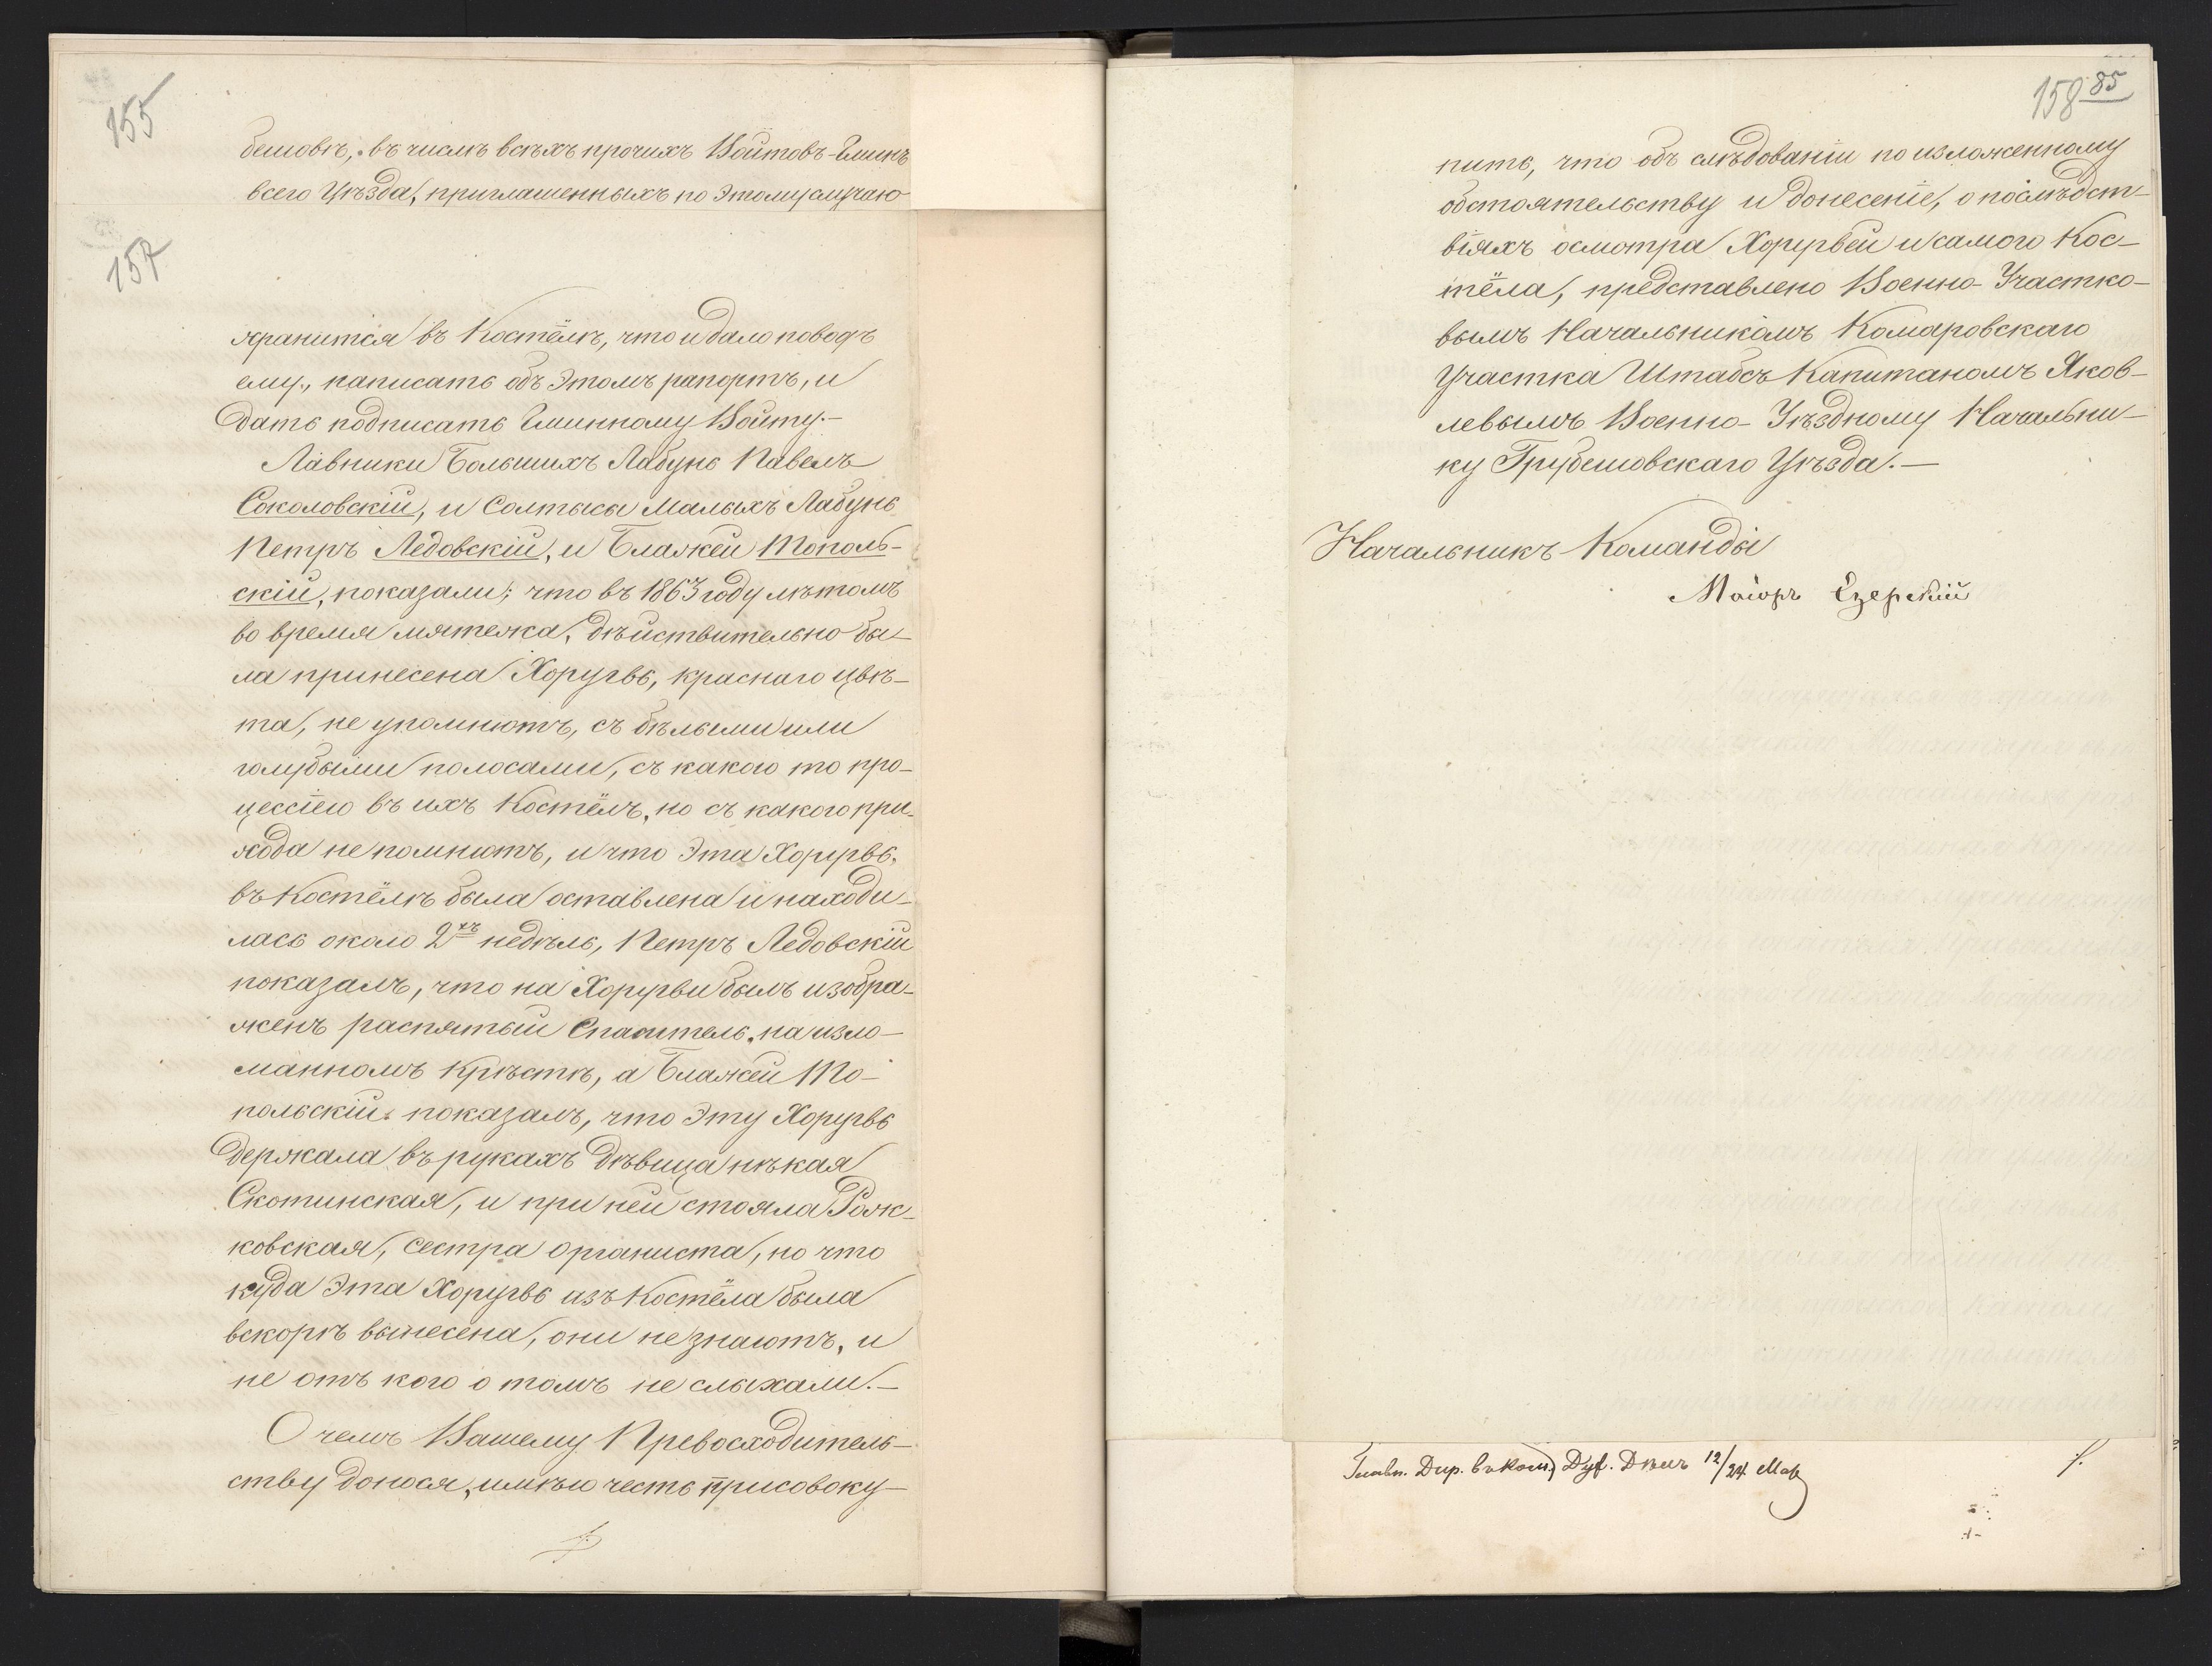 155
бешовѣ, въ числѣ всѣхъ прочихъ Войтовъ-Гминъ
всего Уѣзда, приглашенныхъ по этому случаю
157
хранится въ Костёлѣ, что и дало поводъ
ему, написать объ этомъ рапортъ, и
дать подписать Гминному Войту.-
Лавники Большихъ Лабунь Павелъ
Соколовскій, и Солтысы Малыхъ Лабунь
Петръ Ледовскій, и Блажей Тополь-
скій, показали; что въ 1863 году лѣтомъ
во время мятежа, дѣйствительно бы-
ла принесена Хоругвь, краснаго цвѣ-
та, не упомнютъ, съ бѣлыми или
голубыми полосами, съ какою то про-
цессіею въ ихъ Костёлъ, но съ какого при-
хода не помнютъ, и что эта Хоругвь,
въ Костёлѣ была оставлена и находи-
лась около 2хъ недѣль, Петръ Ледовскій
показалъ, что на Хоругви былъ изобра-
женъ распятый Спаситель, на изло-
манномъ крѣстѣ, а Блажей То-
польскій показалъ, что эту Хоругвь
держала въ рукахъ дѣвица нѣкая
Скотинская, и при ней стояла Рож-
ковская, сестра органиста, но что
куда эта Хоругвь изъ Костёла была
вскорѣ вынесена, они не знаютъ, и
не отъ кого о томъ не слыхали.-
О чемъ Вашему Превосходитель-
ству донося, имѣю честь присовоку-
158 85
пить, что объ слѣдованіи по изложенному
обстоятельству и донесеніе, о послѣдст-
віяхъ осмотра Хоругвей и самого Кос-
тёла, представлено Военно-Участко-
вымъ Начальникомъ Комаровскаго
Участка Штабсъ Капитаномъ Яков-
левымъ Военно-Уѣздному Начальни-
ку Грубешовскаго Уѣзда.-
Начальникъ Команды
Маіоръ Езерскій
Главн. Дир. въ Ком. Дух. Дѣлъ 12/24 Мар